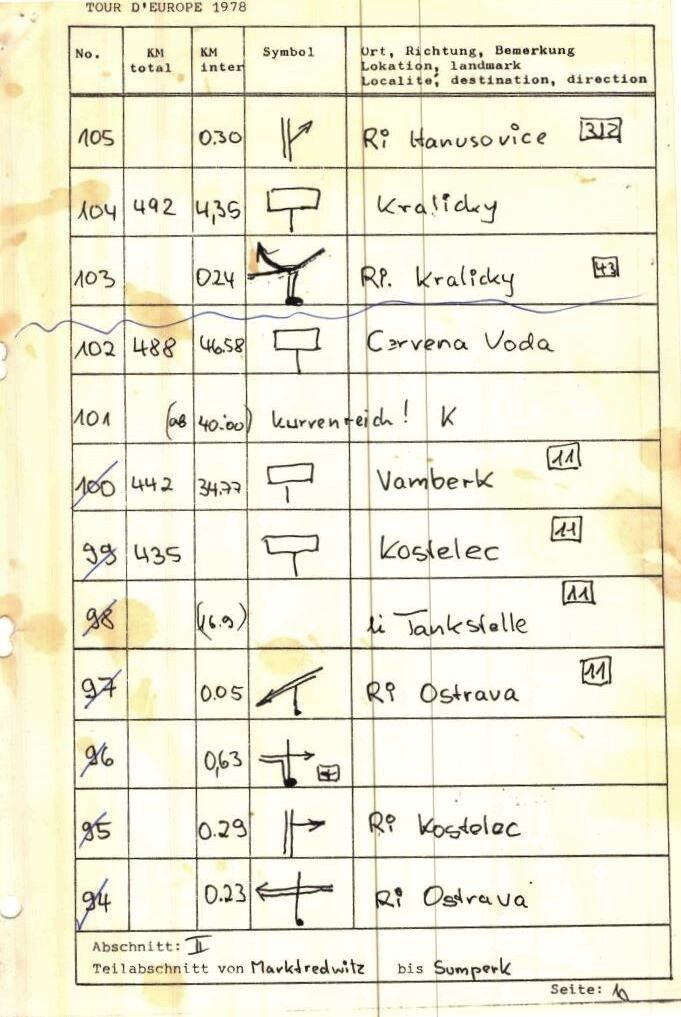 TOUR D'EUROPE 1978
No. KM total KM inter Symbol Ort, Richtung, Bemerkung
Lokation, landmark
Localité, destination, direction
105 0.30 Ri Hanusovice 312
104 492 4,35 Kralicky
103 0.24 Ri. Kralicky 43
102 488 46.58 Cervena Voda
101 (ab 40.00) kurvenreich! K
100 442 34.77 Vamberk 11
99 435 Kostelec 11
98 (16.9) li Tankstelle 11
97 0.05 Ri Ostrava 11
96 0,63
95 0.29 Ri Kostelec
94 0.23 Ri Ostrava
Abschnitt: II
Teilabschnitt von Marktredwitz bis Sumperk
Seite: 10